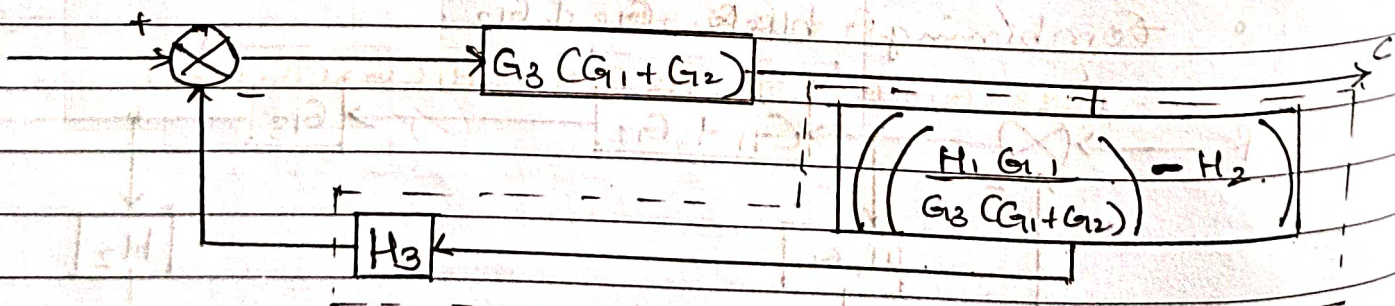 +
G3 (G1 + G2)
C
-
((H1 G1 / G3 (G1+G2)) - H2)
H3